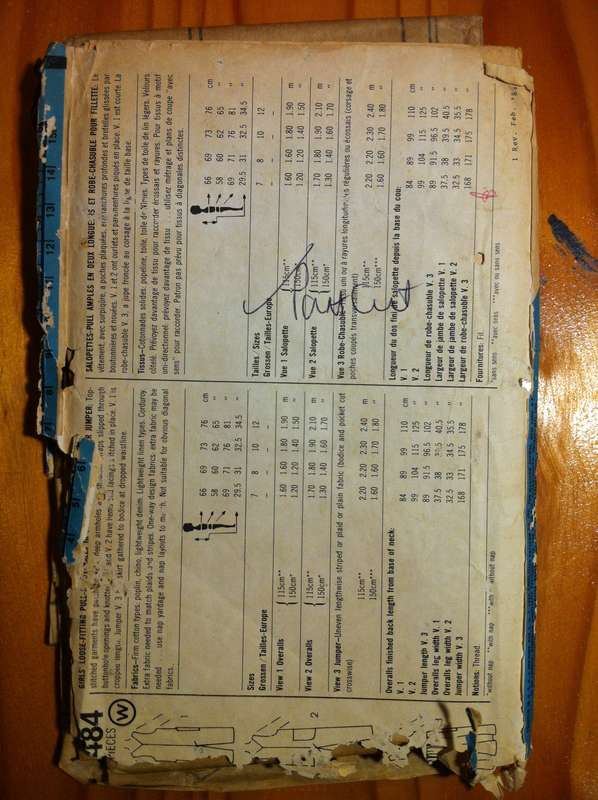 484
PIECES
W
1
2
GIRLS' LOOSE-FITTING R JUMPER: Top-
stitched garments have deep armholes slipped through
buttonhole openings and V. 2 have facings stitched in place. V. 1 is
cropped length. Jumper V. 3 skirt gathered to bodice at dropped waistline.
Fabrics—Firm cotton types, poplin, chino, lightweight denim. Lightweight linen types. Corduroy
Extra fabric needed to match plaids and stripes. One-way design fabrics extra fabric may be
needed use nap yardage and nap layouts to Not suitable for obvious diagonal
fabrics.
66 69 73 76 cm
58 60 62 65 "
69 71 76 81 "
29.5 31 32.5 34.5 "
Sizes 7 8 10 12
Grossen/Tailles-Europe – – – –
View 1 Overalls 115cm** 1.60 1.60 1.80 1.90 m
150cm* 1.20 1.20 1.40 1.50 "
View 2 Overalls 115cm** 1.70 1.80 1.90 2.10 m
150cm* 1.30 1.40 1.60 1.70 "
View 3 Jumper—Uneven lengthwise striped or plaid or plain fabric (bodice and pocket cut
crosswise)
115cm** 2.20 2.20 2.30 2.40 m
150cm*** 1.60 1.60 1.70 1.80 "
Overalls finished back length from base of neck:
V. 1 84 89 99 110 cm
V. 2 99 104 115 125 "
Jumper length V. 3 89 91.5 96.5 102 "
Overalls leg width V. 1 37.5 38 40.5 "
Overalls leg width V. 2 32.5 33 34.5 35.5 "
Jumper width V. 3 168 171 175 178 "
Notions: Thread.
*without nap **with nap ***with or without nap
SALOPETTES-PULL AMPLES EN DEUX ET ROBE-CHASUBLE POUR FILLETTE. Le
vêtement, avec surpiqûre, a poches plaquées, emmanchures profondes et bretelles glissées par
boutonnières et nouées. V. 1 et 2 ont ourlets et parementures piqués en place. V. 1 est courte. La
robe-chasuble V. 3, a jupe froncée au corsage à la ligne de taille basse.
Tissus—Cotonnades solides: popeline, toile, toile de Nîmes. Types de toile de lin légers. Velours
côtelé. Prévoyez davantage de tissu pour raccorder écossais et rayures. Pour tissus à motif
uni-directionnel, prévoyez davantage de tissu utilisez métrage et plans de coupe "avec
sens" pour raccorder. Patron pas prévu pour tissus à diagonales distinctes.
66 69 73 76 cm
58 60 62 65 "
69 71 76 81 "
29.5 31 32.5 34.5 "
Tailles/Sizes 7 8 10 12
Grossen/Tailles-Europe – – – –
Vue 1 Salopette 115cm** 1.60 1.60 1.80 1.90 m
150cm* 1.20 1.20 1.40 1.50 "
Vue 2 Salopette 115cm** 1.70 1.80 1.90 2.10 m
150cm* 1.30 1.40 1.60 1.70 "
Vue 3 Robe-Chasuble uni ou à rayures régulières ou écossais (corsage et
poches coupés transversalement)
115cm** 2.20 2.20 2.30 2.40 m
150cm*** 1.60 1.60 1.70 1.80 "
Longueur du dos fini de salopette depuis la base du cou:
V. 1 84 89 99 110 cm
V. 2 99 104 115 125 "
Longueur de robe-chasuble V. 3 89 91.5 96.5 102 "
Largeur de jambe de salopette V. 1 37.5 38 39.5 40.5 "
Largeur de jambe de salopette V. 2 32.5 33 34.5 35.5 "
Largeur de robe-chasuble V. 3 168 171 175 178 "
Fournitures: Fil.
*sans sens **avec sens ***avec ou sans sens
1 Rev. Feb.